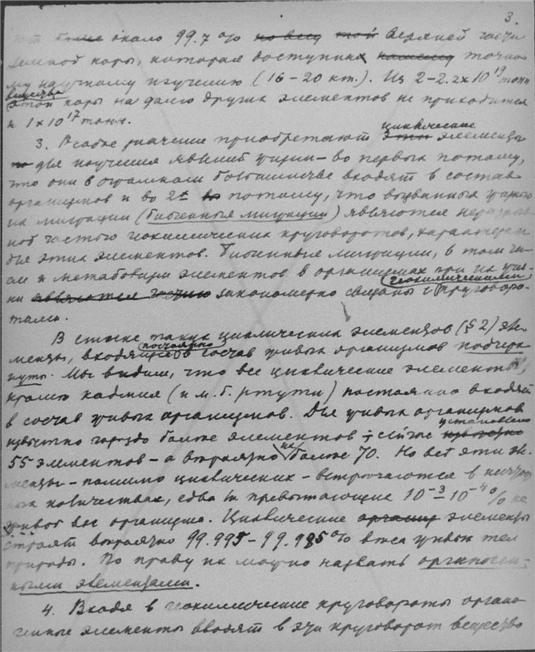 3.
около 99.7% верхней части
земной коры, которая доступна точно-
му научному изучению (16-20 km.). Из 2-2.2x10¹⁹ тонн
вещества этой коры на долю других элементов не приходится
и 1x10¹⁷ тонн.
3. Особое значение приобретают циклические элементы
для изучения явлений жизни - во первых потому,
что они в огромном большинстве входят в состав
организмов и во 2х потому, что вызванные жизнью
их миграции (биогенные миграции) являются неразрыв-
ной частью геохимических круговоротов, характерных
для этих элементов. Биогенные миграции, в том чис-
ле и метаболизм элементов в организмах при их жиз-
ни закономерно связаны с геохимическими кругово-
ротами.
В списке таких циклических элементов (§2) эле-
менты, входящие постоянно в состав живых организмов подчерк-
нуты. Мы видим, что все циклические элементы,
кроме кадмия (и м.б. ртути) постоянно входят
в состав живых организмов. Для живых организмов
известно гораздо больше элементов; сейчас установлено
55 элементов - а вероятно не более 70. Но все эти эле-
менты - помимо циклических - встречаются в ничтож-
ных количествах, едва ли превышающие 10⁻³-10⁻⁴%
живого организма. Циклические элементы
строят вероятно 99.995-99.985% веса живых тел
природы. По праву их можно назвать органоген-
ными элементами.
4. Входя в геохимические круговороты органо-
генные элементы вводят в эти круговорот вещество